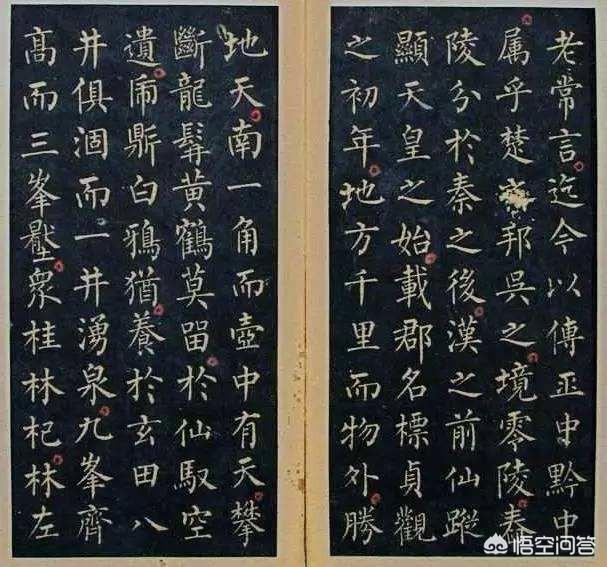 老常言迄今以傳中黔中
属乎楚邦吳之境零陵舂
陵分於秦之後漢之前仙蹤
顯天皇之始載郡名標貞觀
之初年地方千里而物外勝
地天南一角而壺中有天攀
斷龍髯黃鶴莫留於仙馭空
遺鼎白鴉猶養於玄田八
井俱涸而一井湧泉九峯齊
髙而三峯壓衆桂林杞林左
悟空问答